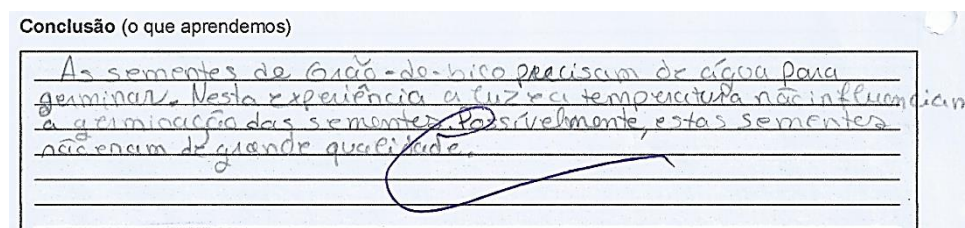 Conclusão (o que aprendemos)
As sementes de Grão-de-bico precisam de água para
germinar. Nesta experiência a luz e a temperatura não influenciam
a germinação das sementes. Possívelmente, estas sementes
não eram de grande qualidade.